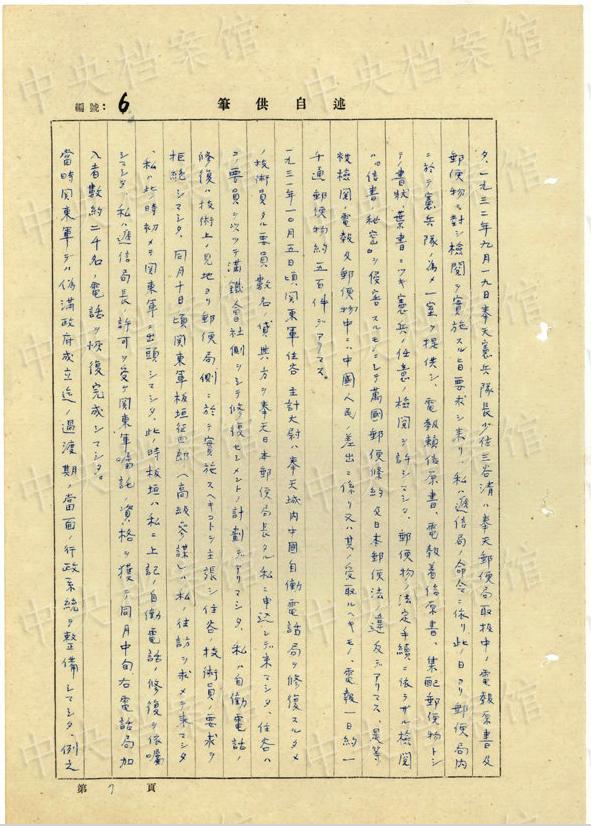 編號: 6
筆供自述
タ、一九三二年九月一九日奉天憲兵隊長少佐三谷清ハ奉天郵便局取扱中ノ電報原書及
郵便物ニ対シ検閲ヲ実施スル旨要求シ来リ、私ハ逓信局ノ命令ニ依リ此日ヨリ郵便局内
ニ於テ憲兵隊ノ為メ一室ヲ提供シ、電報頼信原書、電報着信原書、集配郵便物トシ
テノ書状、葉書ニツキ憲兵ノ任意ノ検閲ヲ許シマシタ、郵便物ノ法定手続ニ依ラザル検閲
ハ「信書ノ秘密」ヲ侵害スルモノニシテ萬國郵便條約及日本郵便法ノ違反デアリマス、是等
被検閲電報及郵便物中ニハ中國人民ノ差出ニ係リ又ハ其ノ受取ルベキモノ、電報一日約一
千通郵便物約五百件デアリマス。
一九三一年一〇月五日頃、関東軍住谷主計大尉ハ奉天城内中國自働電話局ヲ修復スルタメ
ノ技術員タル要員数名ノ貸與方ヲ奉天日本郵便局長タル私ニ申込ンデ来マシタ、住谷ハ
コノ要員ヲ以ツテ満鐵會社側ヲシテ修復セシメントノ計劃デアリマシタ、私ハ自働電話ノ
修復ハ技術上ノ見地ヨリ郵便局側ニ於テ実施スベキコトヲ主張シ住谷ノ技術員ノ要求ヲ
拒絶シマシタ、同月十日頃関東軍板垣征四郎(高級参謀)ハ私ノ住訪ヲ求メテ来マシタ
、私ハ此時初メテ関東軍ニ出頭シマシタ、此ノ時板垣ハ私ニ上記ノ自働電話ノ修復ヲ依嘱
シマシタ、私ハ逓信局長ノ許可ヲ受ケ関東軍嘱託ノ資格ヲ獲テ同月中旬、右電話局加
入者数約二千名ノ電話ヲ恢復完成シマシタ。
當時関東軍デハ偽満政府成立迄ノ過渡期ノ當面ノ行政系統ヲ整備シマシタ、例之
第 7 頁
中央档案馆